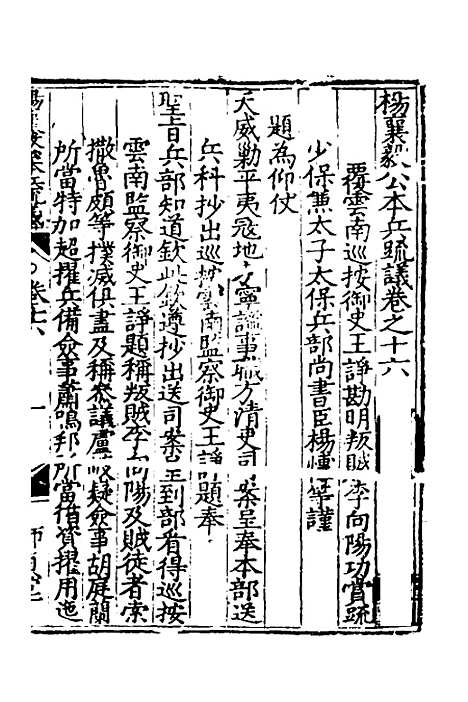 楊襄毅公本兵疏議卷之十六
覆雲南巡按御史王諍勘明叛賊李向陽功賞疏
少保兼太子太保兵部尚書臣楊等謹
題為仰仗
天威勦平夷寇地方寧謐事職方清吏司案呈奉本部送
兵科抄出巡按雲南監察御史王諍題奉
聖旨兵部知道欽此欽遵抄出送司案呈到部看得巡按
雲南監察御史王諍題稱叛賊李向陽及賊徒者索
撒魯頗等撲滅俱盡及稱叅議盧岐嶷僉事胡庭蘭
所當特加超擢兵備僉事蕭鳴邦所當循資擢用迤
卷十六
一